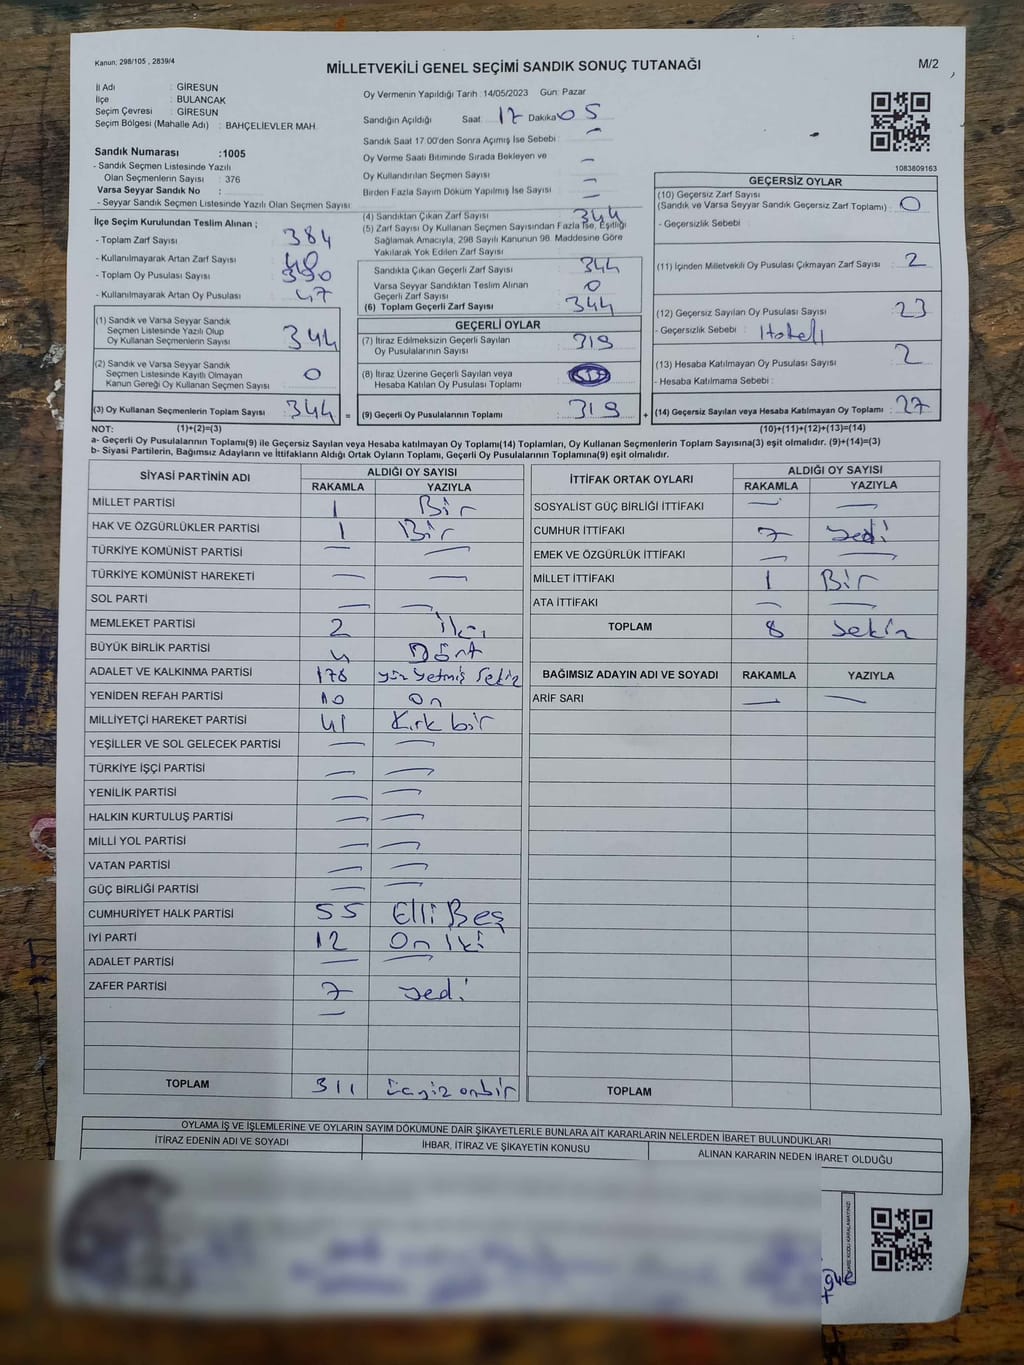 Kanun: 298/105 , 2839/4
MİLLETVEKİLİ GENEL SEÇİMİ SANDIK SONUÇ TUTANAĞI
M/2
İl Adı : GİRESUN
İlçe : BULANCAK
Seçim Çevresi : GİRESUN
Seçim Bölgesi (Mahalle Adı) : BAHÇELİEVLER MAH.
Oy Vermenin Yapıldığı Tarih : 14/05/2023 Gün: Pazar
Sandığın Açıldığı Saat 17 Dakika 05
Sandık Saat 17.00'den Sonra Açımış İse Sebebi : –
Oy Verme Saati Bitiminde Sırada Bekleyen ve
Oy Kullandırılan Seçmen Sayısı : –
Birden Fazla Sayım Döküm Yapılmış İse Sayısı : –
1083809163
Sandık Numarası :1005
- Sandık Seçmen Listesinde Yazılı
Olan Seçmenlerin Sayısı : 376
Varsa Seyyar Sandık No :
- Seyyar Sandık Seçmen Listesinde Yazılı Olan Seçmen Sayısı:
İlçe Seçim Kurulundan Teslim Alınan ;
- Toplam Zarf Sayısı : 384
- Kullanılmayarak Artan Zarf Sayısı : 40
- Toplam Oy Pusulası Sayısı :
- Kullanılmayarak Artan Oy Pusulası : 47
(1) Sandık ve Varsa Seyyar Sandık
Seçmen Listesinde Yazılı Olup
Oy Kullanan Seçmenlerin Sayısı : 344
(2) Sandık ve Varsa Seyyar Sandık
Seçmen Listesinde Kayıtlı Olmayan
Kanun Gereği Oy Kullanan Seçmen Sayısı : 0
(3) Oy Kullanan Seçmenlerin Toplam Sayısı : 344 =
(4) Sandıktan Çıkan Zarf Sayısı : 344
(5) Zarf Sayısı Oy Kullanan Seçmen Sayısından Fazla İse, Eşitliği
Sağlamak Amacıyla, 298 Sayılı Kanunun 98. Maddesine Göre
Yakılarak Yok Edilen Zarf Sayısı :
Sandıkta Çıkan Geçerli Zarf Sayısı : 344
Varsa Seyyar Sandıktan Teslim Alınan
Geçerli Zarf Sayısı : 0
(6) Toplam Geçerli Zarf Sayısı : 344
GEÇERLİ OYLAR
(7) İtiraz Edilmeksizin Geçerli Sayılan
Oy Pusulalarının Sayısı : 319
(8) İtiraz Üzerine Geçerli Sayılan veya
Hesaba Katılan Oy Pusulası Toplamı :
(9) Geçerli Oy Pusulalarının Toplamı : 319 +
GEÇERSİZ OYLAR
(10) Geçersiz Zarf Sayısı
(Sandık ve Varsa Seyyar Sandık Geçersiz Zarf Toplamı) : 0
- Geçersizlik Sebebi :
(11) İçinden Milletvekili Oy Pusulası Çıkmayan Zarf Sayısı : 2
(12) Geçersiz Sayılan Oy Pusulası Sayısı : 23
- Geçersizlik Sebebi : Hatalı
(13) Hesaba Katılmayan Oy Pusulası Sayısı : 2
- Hesaba Katılmama Sebebi :
(14) Geçersiz Sayılan veya Hesaba Katılmayan Oy Toplamı : 27
NOT: (1)+(2)=(3) (10)+(11)+(12)+(13)=(14)
a- Geçerli Oy Pusulalarının Toplamı(9) ile Geçersiz Sayılan veya Hesaba katılmayan Oy Toplamı(14) Toplamları, Oy Kullanan Seçmenlerin Toplam Sayısına(3) eşit olmalıdır. (9)+(14)=(3)
b- Siyasi Partilerin, Bağımsız Adayların ve İttifakların Aldığı Ortak Oyların Toplamı, Geçerli Oy Pusulalarının Toplamına(9) eşit olmalıdır.
SİYASİ PARTİNİN ADI ALDIĞI OY SAYISI
RAKAMLA YAZIYLA
MİLLET PARTİSİ 1 Bir
HAK VE ÖZGÜRLÜKLER PARTİSİ 1 Bir
TÜRKİYE KOMÜNİST PARTİSİ – –
TÜRKİYE KOMÜNİST HAREKETİ – –
SOL PARTİ – –
MEMLEKET PARTİSİ 2 İki
BÜYÜK BİRLİK PARTİSİ 4 Dört
ADALET VE KALKINMA PARTİSİ 178 yüz yetmiş sekiz
YENİDEN REFAH PARTİSİ 10 On
MİLLİYETÇİ HAREKET PARTİSİ 41 Kırk bir
YEŞİLLER VE SOL GELECEK PARTİSİ – –
TÜRKİYE İŞÇİ PARTİSİ – –
YENİLİK PARTİSİ – –
HALKIN KURTULUŞ PARTİSİ – –
MİLLİ YOL PARTİSİ – –
VATAN PARTİSİ – –
GÜÇ BİRLİĞİ PARTİSİ – –
CUMHURİYET HALK PARTİSİ 55 Elli Beş
İYİ PARTİ 12 On İki
ADALET PARTİSİ – –
ZAFER PARTİSİ 7 yedi
–
TOPLAM 311 üçyüz onbir
İTTİFAK ORTAK OYLARI ALDIĞI OY SAYISI
RAKAMLA YAZIYLA
SOSYALİST GÜÇ BİRLİĞİ İTTİFAKI – –
CUMHUR İTTİFAKI 7 yedi
EMEK VE ÖZGÜRLÜK İTTİFAKI – –
MİLLET İTTİFAKI 1 Bir
ATA İTTİFAKI – –
TOPLAM 8 sekiz
BAĞIMSIZ ADAYIN ADI VE SOYADI RAKAMLA YAZIYLA
ARİF SARI – –
TOPLAM
OYLAMA İŞ VE İŞLEMLERİNE VE OYLARIN SAYIM DÖKÜMÜNE DAİR ŞİKAYETLERLE BUNLARA AİT KARARLARIN NELERDEN İBARET BULUNDUKLARI
İTİRAZ EDENİN ADI VE SOYADI
İHBAR, İTİRAZ VE ŞİKAYETİN KONUSU
ALINAN KARARIN NEDEN İBARET OLDUĞU